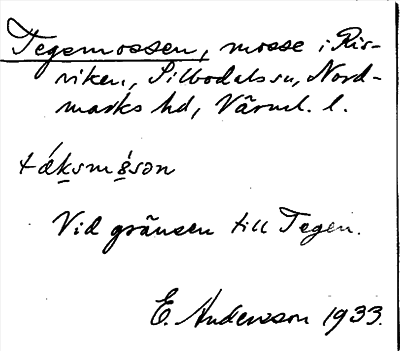 Tegsmossen, mosse i Ris-
viken, Silbodals sn, Nord-
marks hd, Värml. l.
tǽksmɵ́sən
Vid gränsen till Tegen.
E. Andersson 1933.